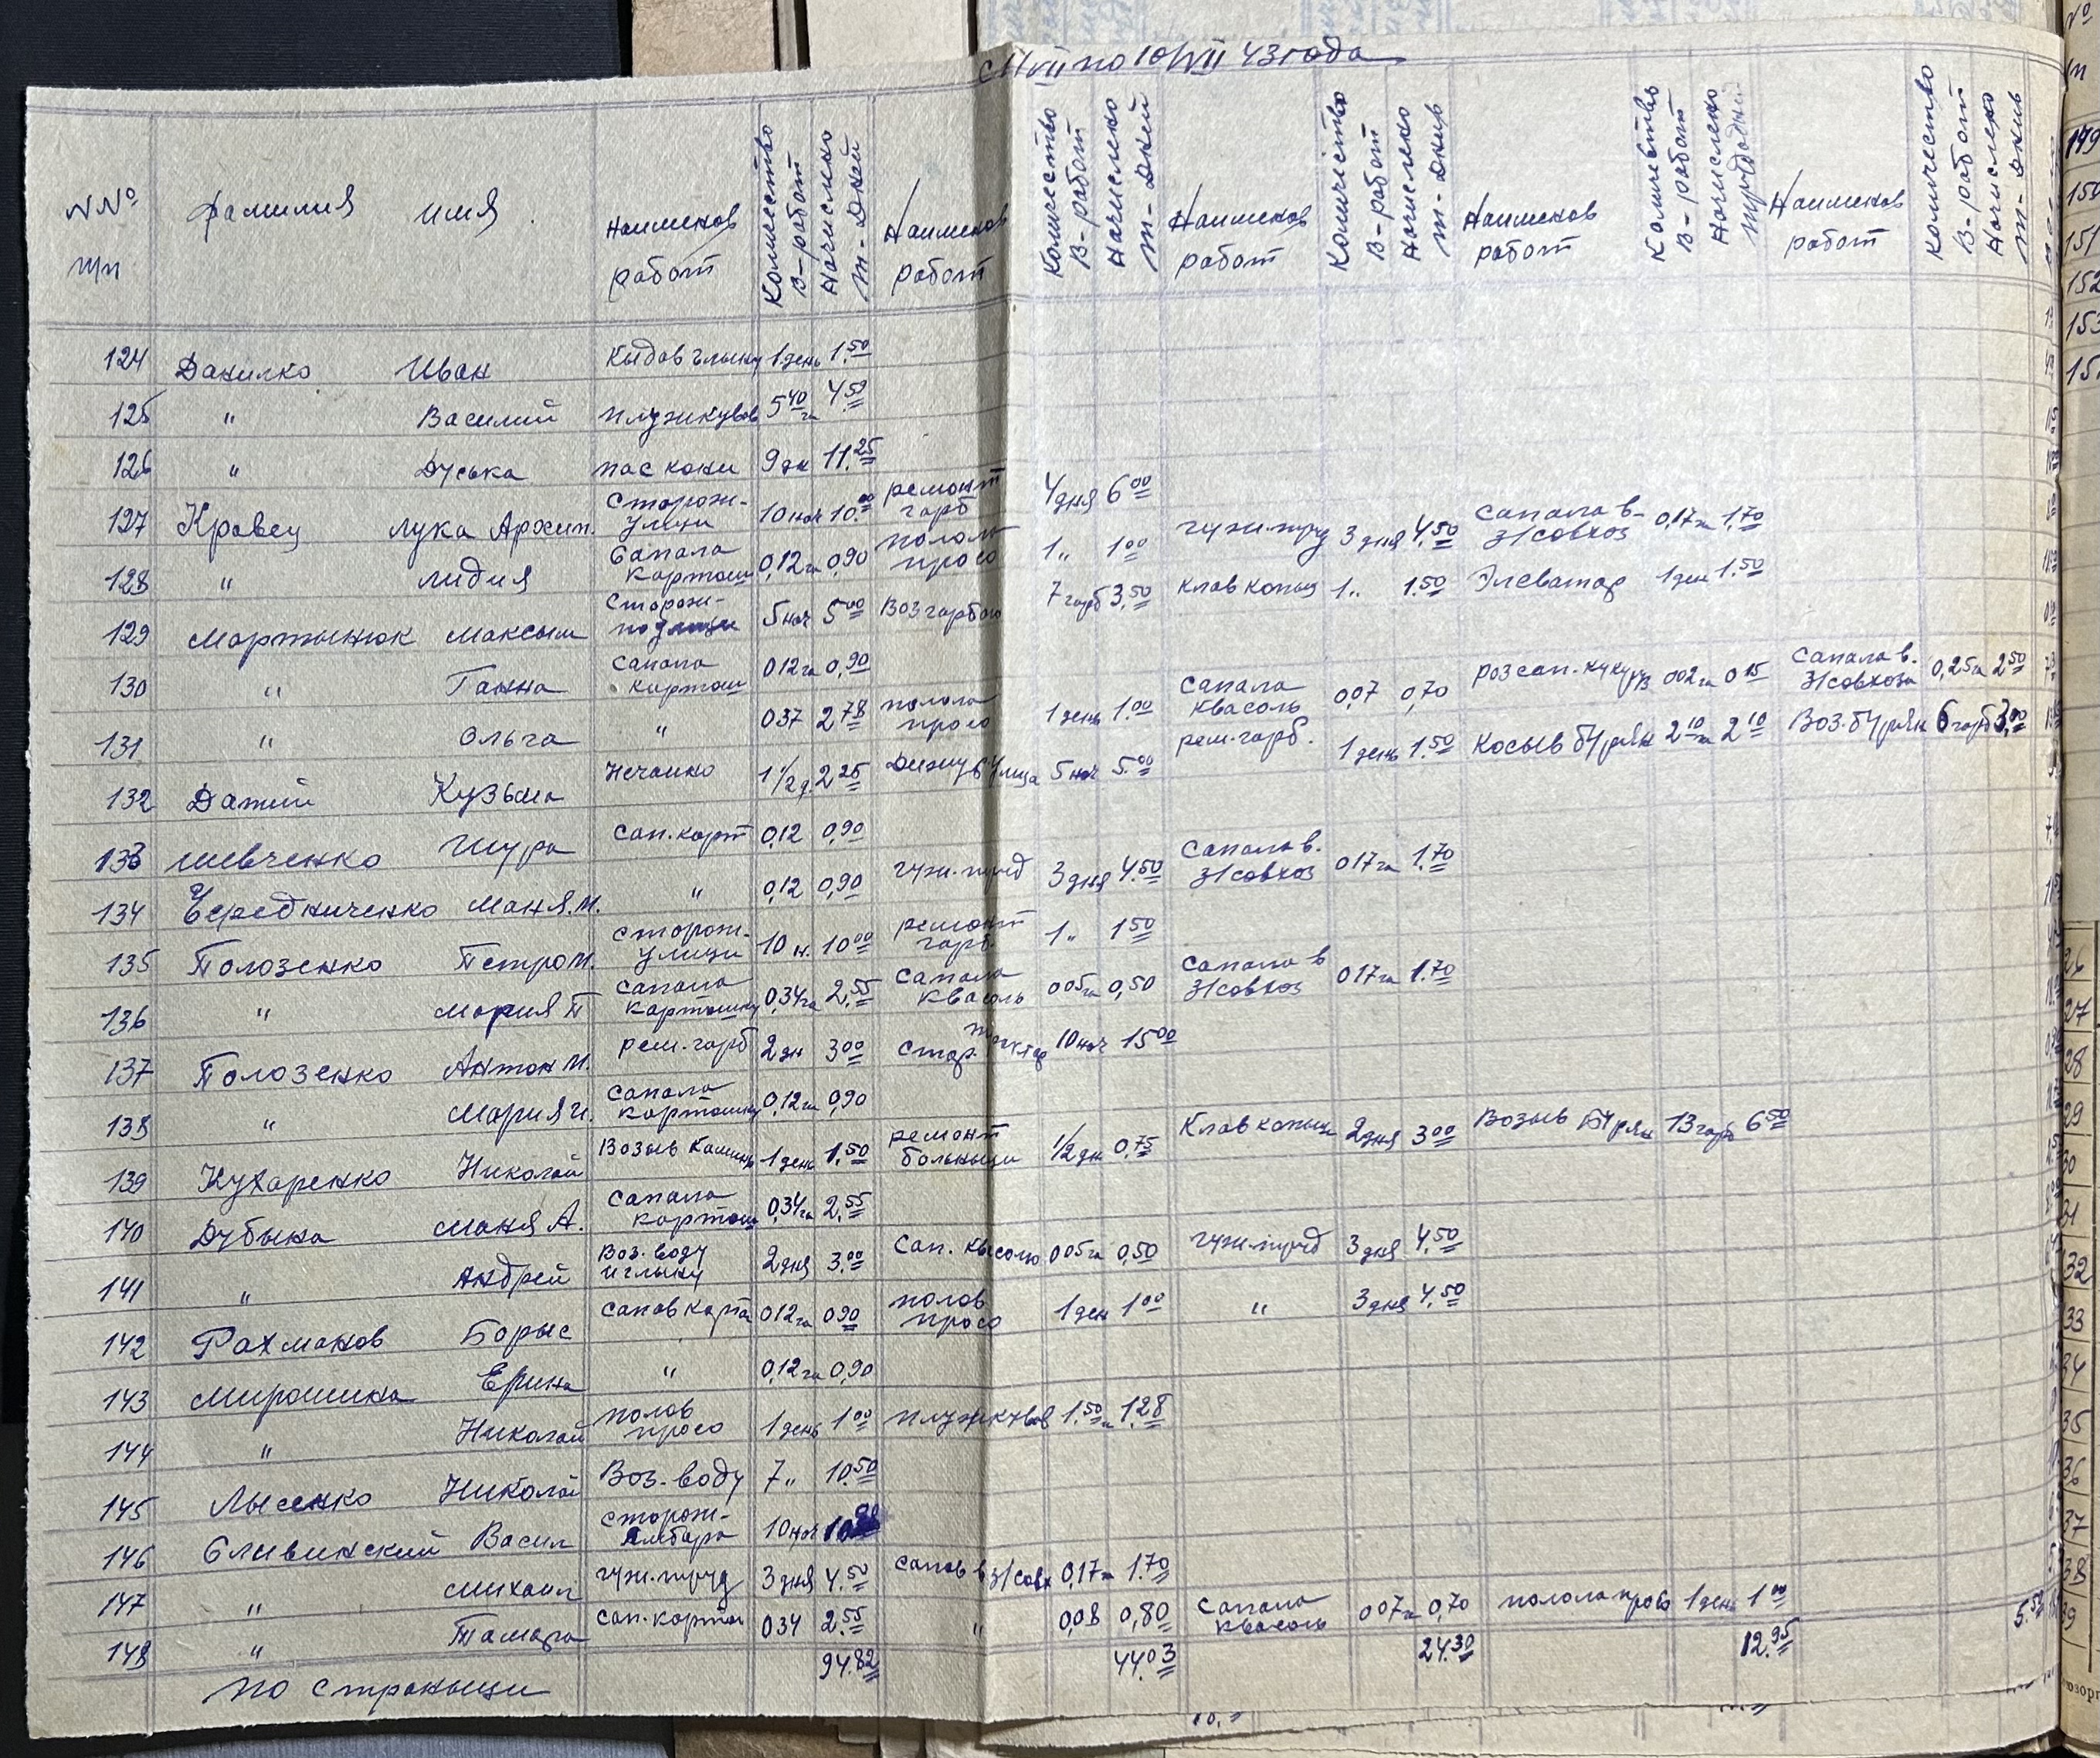 с 1/VII по 10/VII 43 года
NNº п/п Фамилия имя Наименов работ Количество В-работ Начислено т-дней Наименов работ Количество В-работ Начислено т-дней Наименов работ Количество В-работ Начислено т-днив Наименов работ Количество В-работ Начислено трудодней Наименов работ Количество В-работ Начислено т-днив
124 Данилко Иван Кыдав глыну 1 день 1.50
125 " Василий плужкував 5 40 га 4.50
126 " Дуська пас кони 9 дн 11.25
127 Кравец Лука Архип. Сторож-улици 10 ноч 10.00 ремонт гарб 4 дня 6 00
128 " Лидия Сапала картош 0,12 га 0,90 полола просо 1 " 1 00 гуж-труд 3 дня 4.50 Сапала в З/совхоз 0,17 га 1.70
129 Мартынюк Максым Сторож- 5 ноч 5 00 Воз гарбою 7 гарб 3,50 Клав копыц 1 " 1.50 Элеватор 1 ден 1.50
130 " Ганна Сапала картош 012 га 0,90
131 " Ольга " 037 2 78 полола просо 1 день 1.00 Сапала квасоль 0,07 0,70 роз сап. кукур 002 га 0 15 Сапала в. З/совхоза 0,25 га 2 50
132 Датий Кузьма 1 1/2 д. 2 25 Дижур улица 5 ноч 5.00 рем. гарб. 1 день 1.50 Косыв бурян 2 10 га 2 10 Воз. бурян 6 гарб 3,00
133 Шевченко Шура Сап. карт 0,12 0,90
134 Чередниченко Маня. М. " 0,12 0,90 гуж. труд 3 дня 4.50 Сапала в. З/совхоз 017 га 1.70
135 Полозенко Петро М. Сторож-улици 10 н. 10 00 ремонт гарб. 1 " 1 50
136 " Мария П Сапала картошку 0,34 га 2.55 Сапала квасоль 005 га 0,50 Сапала в З/совхоз 017 га 1.70
137 Полозенко Антон И. рем. гарб 2 дн 3 00 Стор. трактор 10 ноч 15 00
138 " Мария И. Сапала картошку 0,12 га 0,90
139 Кухаренко Николай Возыв Каминь 1 день 1.50 ремонт больныци 1/2 дн 0.75 Клав копыци 2 дня 3 00 Возыв бурян 13 гарб 6 50
140 Дубына Маня А. Сапала картош 0,34 га 2.55
141 " Андрей Воз. воду и глыну 2 дня 3.00 Сап. квасолю 005 га 0,50 гуж. труд 3 дня 4.50
142 Рахманов Борыс Сапав карто 012 га 0 90 полов просо 1 ден 1 00 " 3 дня 4.50
143 Мирошника Ерина " 0,12 га 0,90
144 " Николай полов просо 1 день 1 00 плужкував 1.50 га 1.28
145 Лысенко Николай Воз. воду 7 " 10.50
146 Сливинский Васил Сторож-амбара 10 ноч
147 " Михаил гуж. труд 3 дня 4.50 Сапав в З/совх 0,17 га 1.70
148 " Тамара Сап. карто 034 2.55 " 0,08 0,80 Сапала квасоль 007 га 0,70 полола просо 1 день 1 00
По страныци 94.82 44.03 24.30 12.95 5.50
149
150
151
152
153
26
27
28
29
30
31
32
33
34
35
36
37
38
39